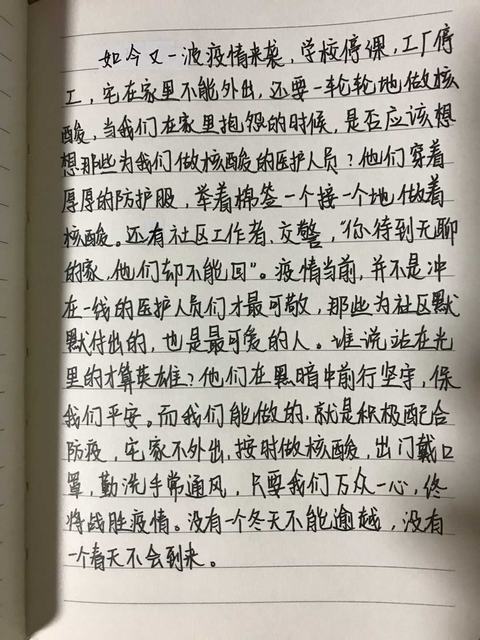 如今又一波疫情来袭，学校停课，工厂停
工，宅在家里不能外出，还要一轮轮地做核
酸，当我们在家里抱怨的时候，是否应该想
想那些为我们做核酸的医护人员？他们穿着
厚厚的防护服，举着棉签一个接一个地做着
核酸。还有社区工作者、交警，“你待到无聊
的家，他们却不能回”。疫情当前，并不是冲
在一线的医护人员们才最可敬，那些为社区默
默付出的，也是最可爱的人。谁说站在光
里的才算英雄？他们在黑暗中前行坚守，保
我们平安。而我们能做的，就是积极配合
防疫，宅家不外出，按时做核酸，出门戴口
罩，勤洗手常通风，只要我们万众一心，终
将战胜疫情。没有一个冬天不能逾越，没有
一个春天不会到来。